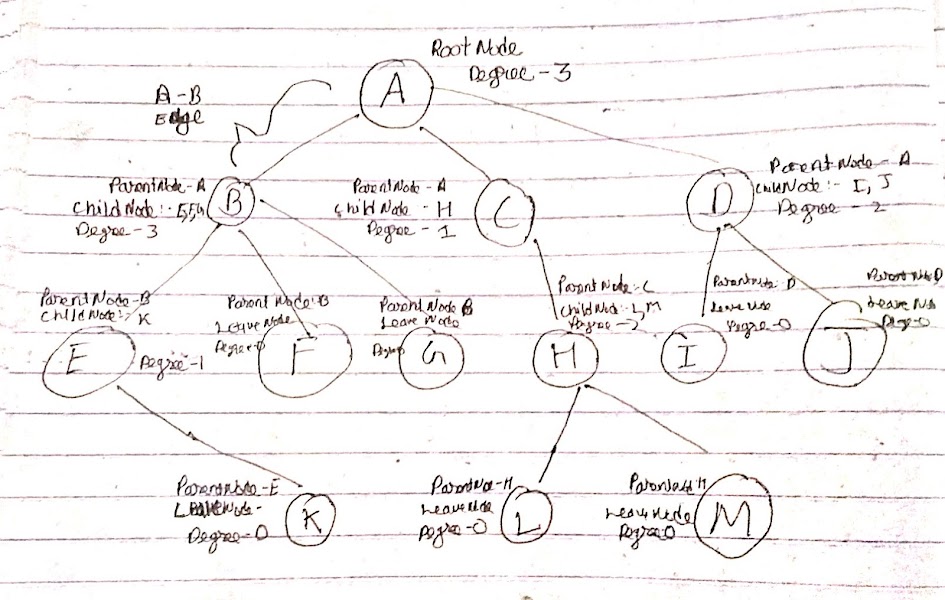 Root Node
Degree - 3
A
A - B
Edge
Parent Node - A
Child Node :- E,F,G
Degree - 3
B
Parent Node - A
Child Node - H
Degree - 1
C
D
Parent Node - A
Child Node :- I, J
Degree - 2
Parent Node - B
Child Node :- K
E
Degree - 1
Parent Node : B
Leave Node
Degree - 0
F
Parent Node B
Leave Node
G
Parent Node - C
Child Node :- L, M
Degree - 2
H
Parent Node : D
Leave Node
Degree - 0
I
Parent Node D
Leave Node
J
Parent Node - E
Leave Node -
Degree - 0
K
Parent Node - H
Leave Node
Degree - 0
L
Parent Node H
Leave Node
Degree 0
M